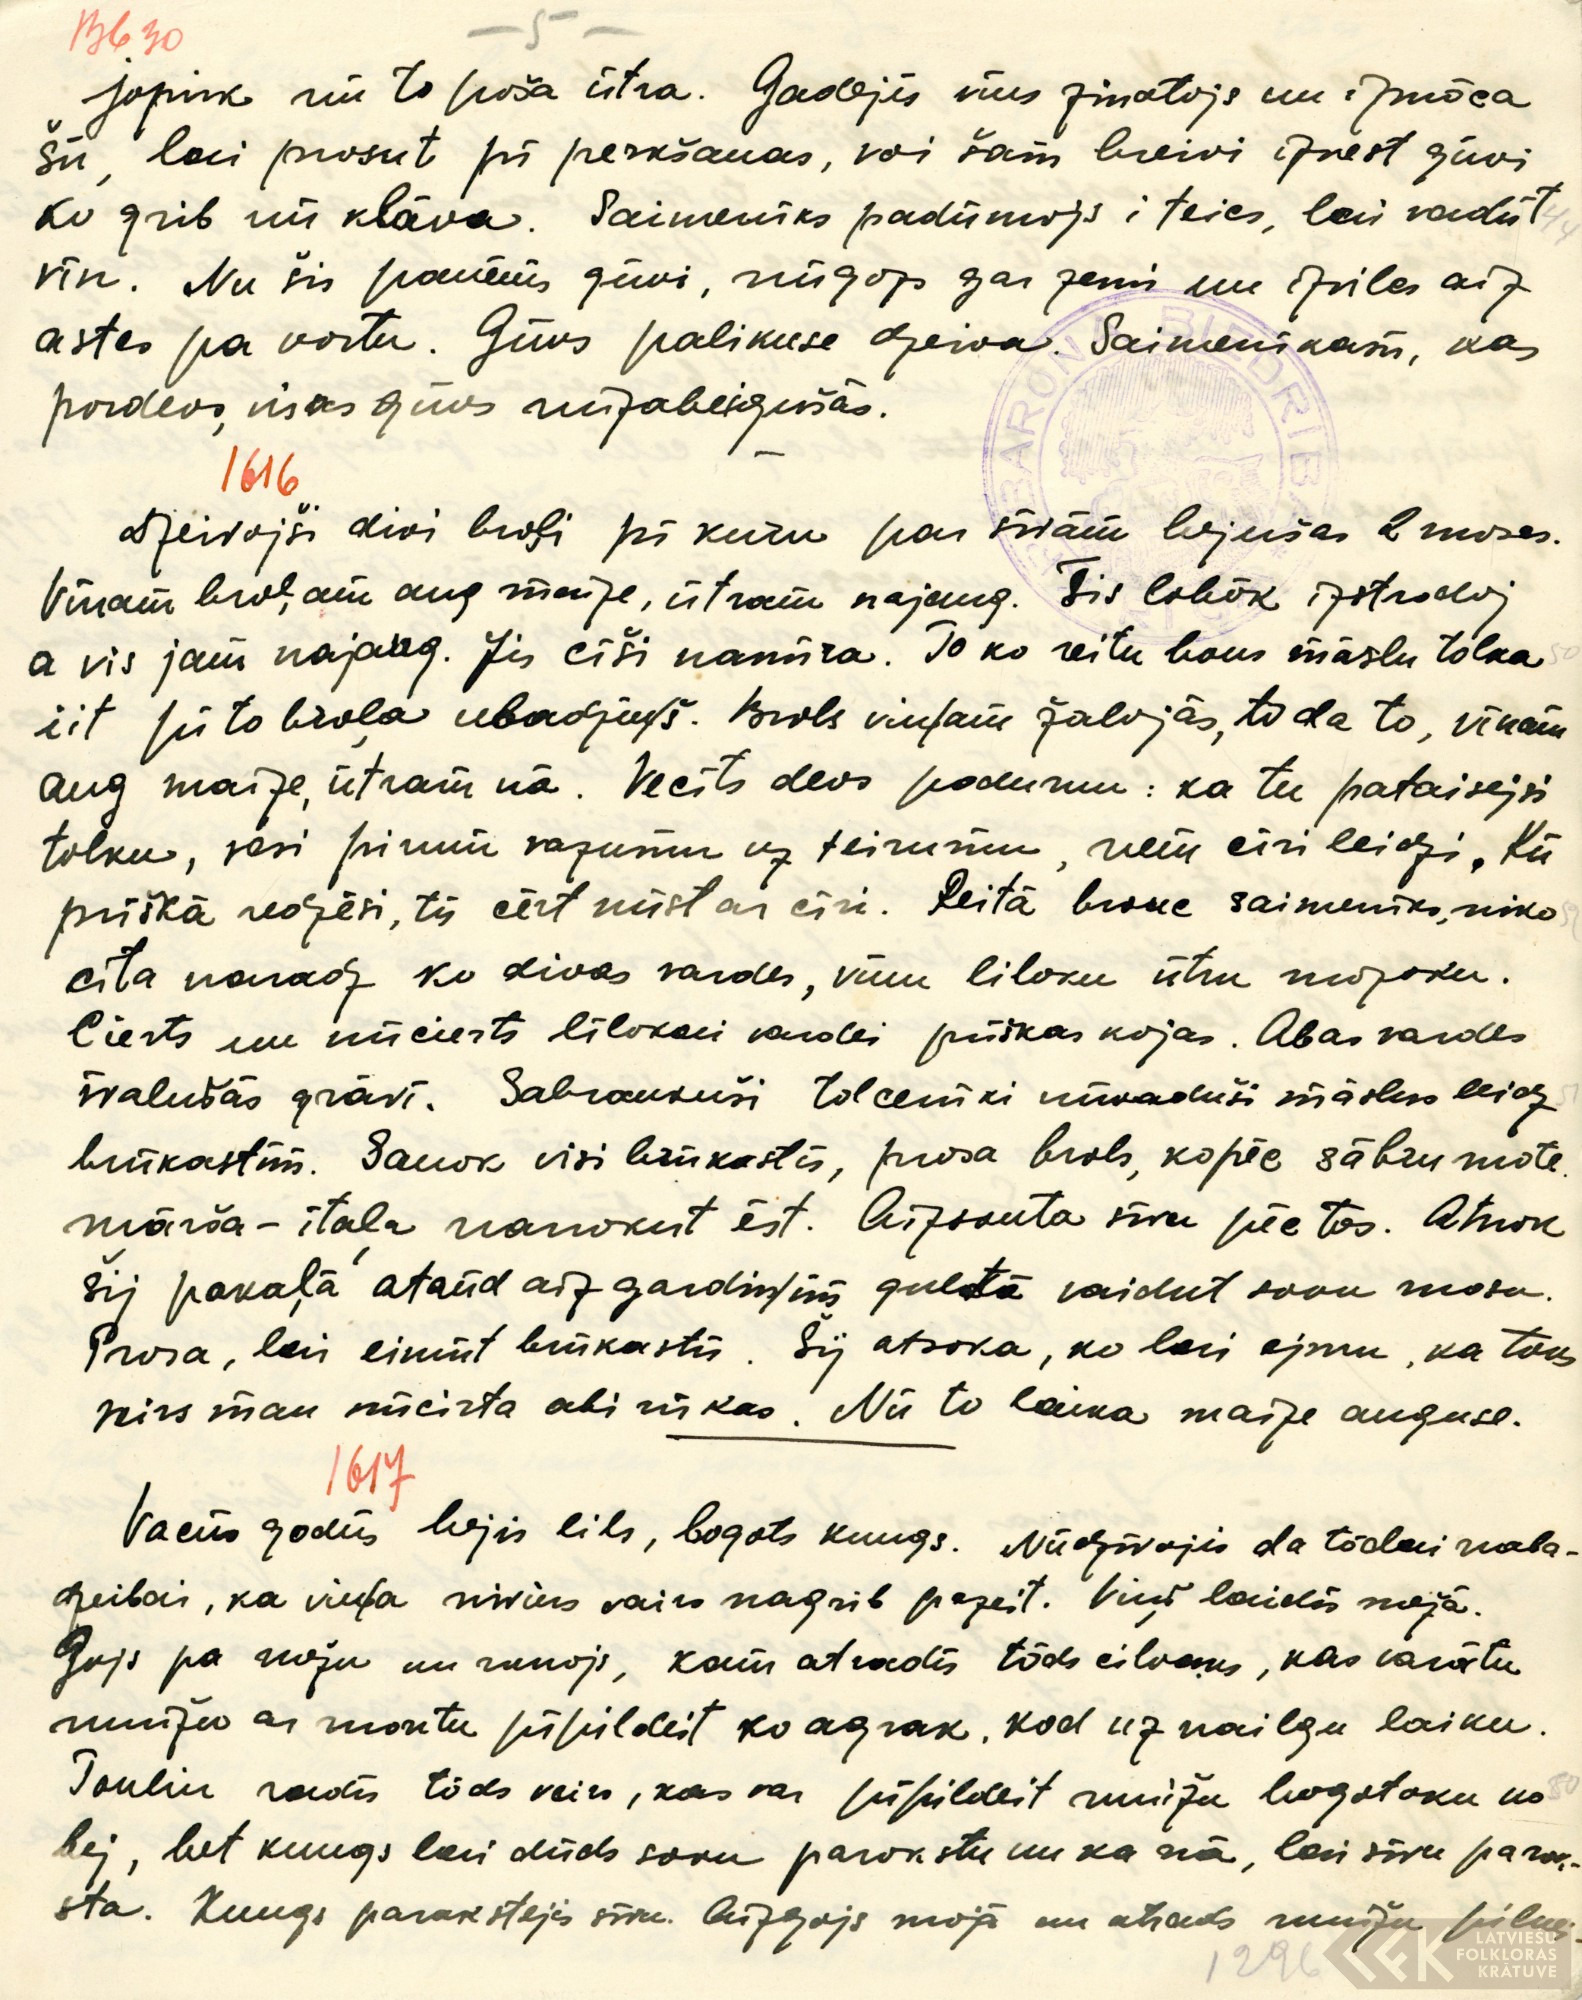 Bb 30
— 5 —
jopirk nu to poša ūtra. Gadejīs vīns zinotojs un izmōca
šū, lai prosut pī pērkšanas, voi šam breivi izvest gūvi
ko grib nu klāva. Saimenīks padūmojs i teics, lai vadūt
vīn. Nu šis paņēms gūvi, nūgozs gar zemi un izvilcs aiz
astes pa vortu. Gūvs palikuse dzeiva. Saimenīkam, kas
pordevs, visas gūvs nūzabeigušās.
1616
Dzeivojši divi broļi pī kuru par sīvām bejušas 2 mosas.
Vīnam broļam aug maize, ūtram najaug. Šis lobōk izstrodoj
a vis jam najaug. Jis cīši namīra. To ko reitu bous māslu tolka
īit pī to broļa ubadzinš. Brols viņam žalojās, tō da to, vīnam
aug maize, ūtram nā. Vecīts devs padumu: ka tu pataisejsi
tolku, vesi pirmū vazumu uz teirumu, ņem ciri leidzi. Kū
prīškā redzēsi, tū cērt nūst ar ciri. Reitā brauc saimenīks, niko
cita naradz ko divas vardes, vīnu liloku ūtru mozoku.
Cierts un nūcierts lilokai vardei prīškas kojas. Abas vardes
īvalušās grāvī. Sabraukuši tolcenīki nūvaduši māslus leidz
brūkastim. Sanok visi brūkastīs, prosa brols, kopēc sābru mote
mārša – ītaļa nanokut ēst. Aizsouta sīvu pēc tōs. Atnok
šij pakaļā atrūd aiz gardinom gultā vaidut sovu mosu.
Prosa, lai eimūt brūkastīs. Šij atsoka, ko lai ejmu, ka tovs
veirs man nūcirta abi rūkas. Nū to laika maize auguse.
1617
Vacūs godūs bejis lils, bogots kungs. Nūdzīvojis da tōdai naba-
dzeibai, ka viņa nivīns vairs nagrib pazeit. Viņš laidīs mežā.
Gojs pa mežu un runojs, kam atradīs tōds cilvaks, kas varātu
muižu ar montu pīpildeit ko agrak, kod uz nailgu laiku.
Toulin radīs tōds veirs, kas var pīpildeit muižu bogotoku na
bej, bet kungs lai dūds sovu parokstu un ka nā, lai sīvu parok-
sta. Kungs parakstejis sīvu. Aizgojs mojā un atrads muižu pilnei-
1296
BARONA BIEDRĪBA
LATVIEŠU
FOLKLORAS
KRĀTUVE